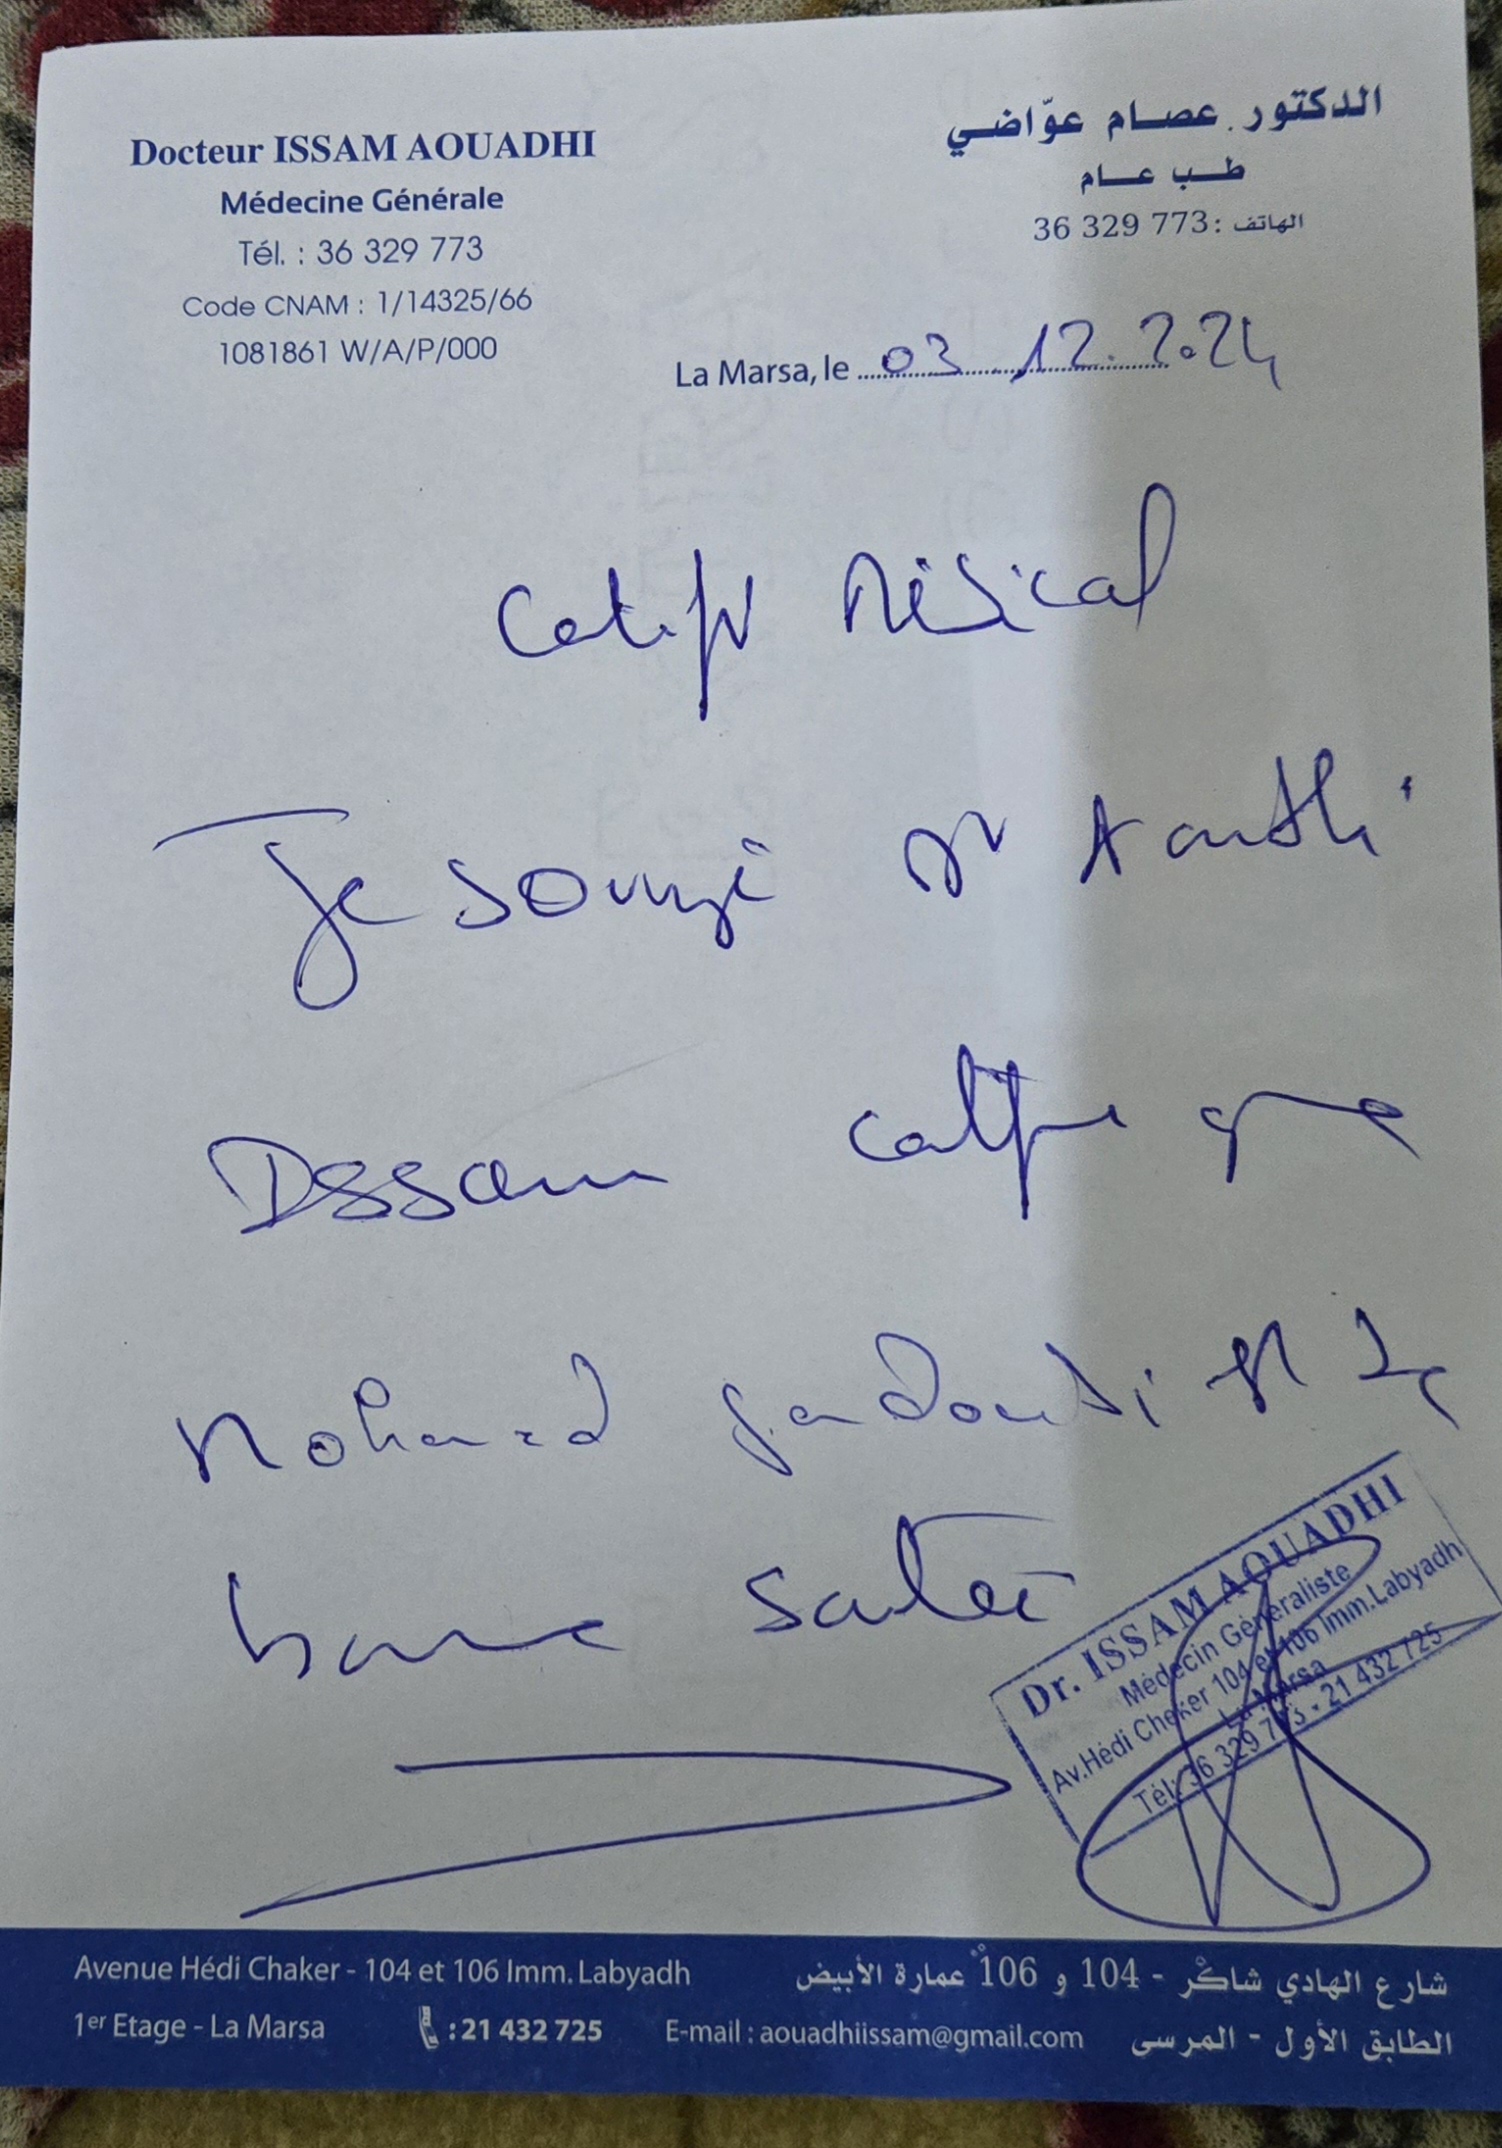 Docteur ISSAM AOUADHI
Médecine Générale
Tél. : 36 329 773
Code CNAM : 1/14325/66
1081861 W/A/P/000
الدكتور عصام عوّاضي
طب عام
الهاتف : 773 329 36
La Marsa, le 03 12.2024
Certificat Médical
Je soussigné Dr Aouadhi
Issam certifie que
Mohamed est en
bonne santé
Dr. ISSAM AOUADHI
Médecin Généraliste
Av.Hédi Cheker 104 et 106 Imm.Labyadh
La Marsa
Tél: 36 329 773 - 21 432 725
Avenue Hédi Chaker - 104 et 106 Imm. Labyadh
1er Etage - La Marsa : 21 432 725 E-mail : aouadhiissam@gmail.com
شارع الهادي شاكر - 104 و 106 عمارة الأبيض
الطابق الأول - المرسى